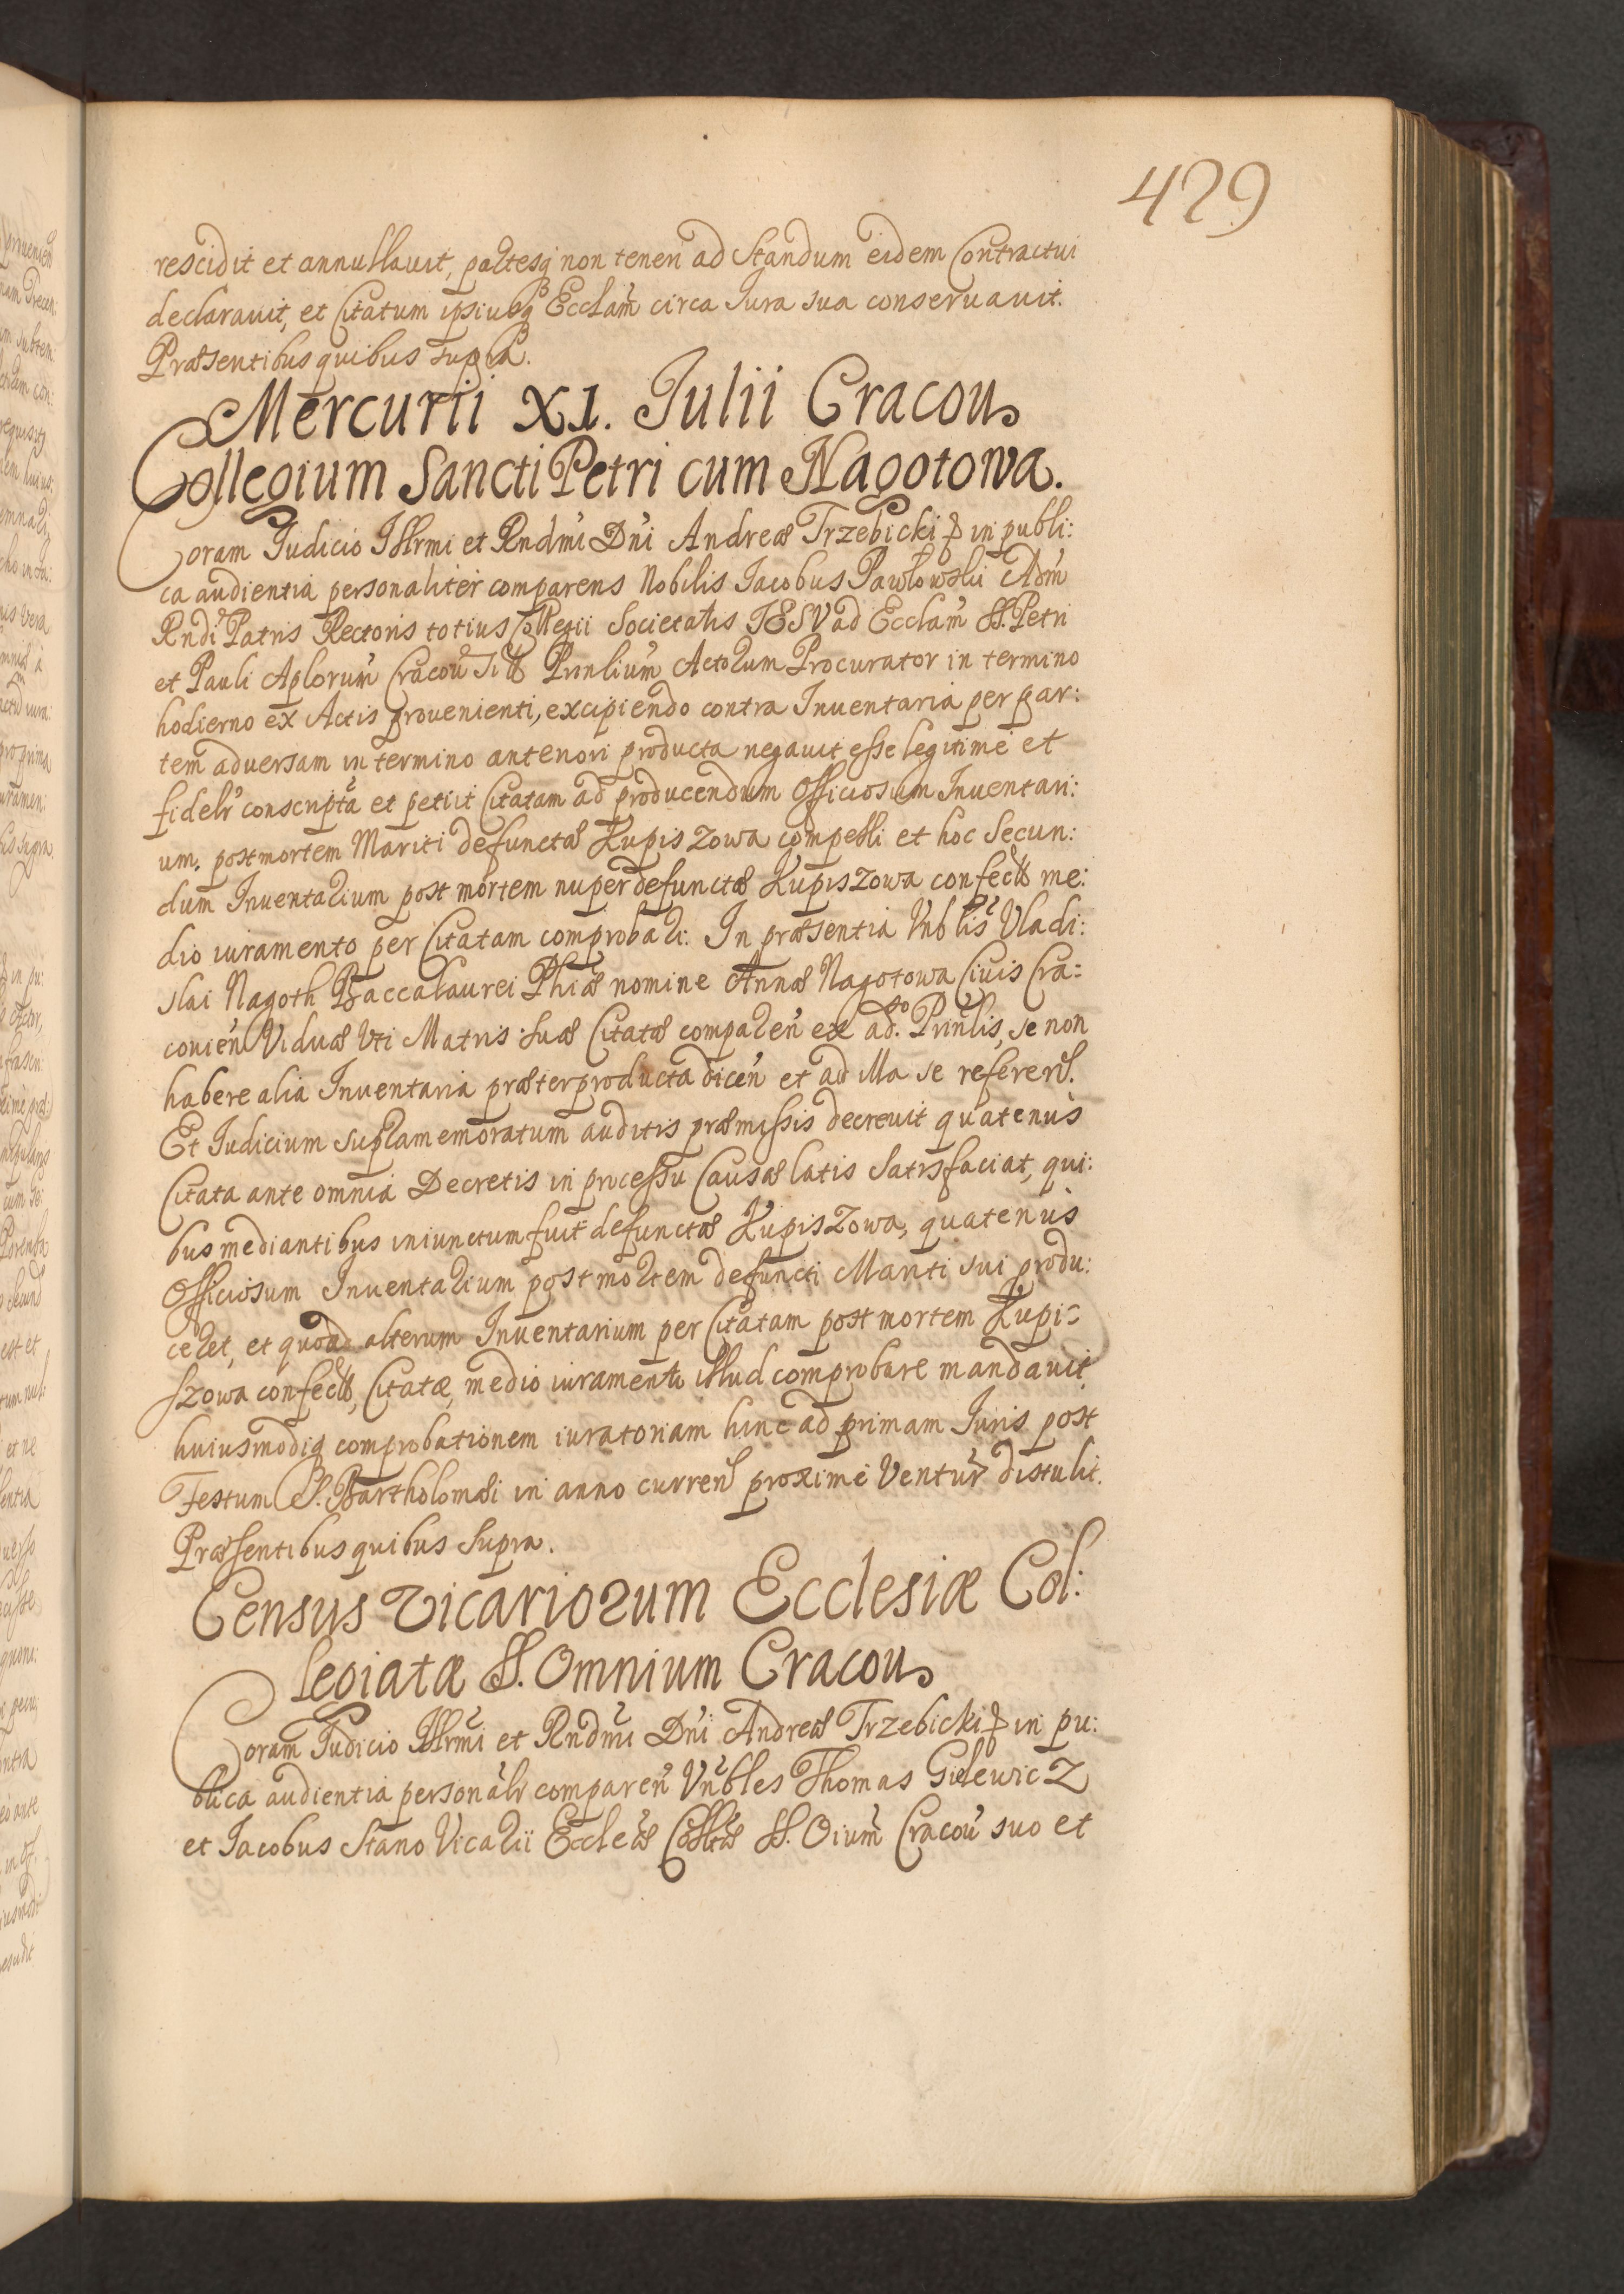 429
rescidit et annullauit, partesq non teneri ad standum eidem Contractui
declarauit, et Citatum ipsiusq Ecclam circa Iura sua conseruauit.
Præsentibus quibus supra.
Mercurii XI. Iulii Cracou
Collegium Sancti Petri cum Nagotowa.
Coram Iudicio Illrmi et Rndmi Dni Andreæ Trzebicki in publi:
ca audientia personaliter comparens Nobilis Iacobus Pawłowski Adm
Rndi Patris Rectoris totius Collegii Societatis IESV ad Ecclam SS. Petri
et Pauli Aplorum Cracou Prinlium Actorum Procurator in termino
hodierno ex Actis prouenienti, excipiendo contra Inuentaria per par:
tem aduersam in termino anteriori producta negauit esse legitime et
fidelr conscripta et petiit Citatam ad producendum Officiosum Inuentari:
um, post mortem Mariti defunctæ Kupiszowa compelli et hoc secun:
dum Inuentarium post mortem nuper defunctæ Kupiszowa confect me:
dio iuramento per Citatam comprobari. In præsentia Vnblis Vladi:
slai Nagoth Baccalaurei Phiæ nomine Annæ Nagotowa Ciuis Cra=
couien Viduæ Vti Matris suæ Citatæ comparen ex adso Prinlis, se non
habere alia Inuentaria præter producta dicen et ad illa se referen.
Et Iudicium supra memoratum auditis præmissis decreuit quatenus
Citata ante omnia Decretis in processu Causæ latis satisfaciat, qui:
bus mediantibus iniunctum fuit defunctæ Kupiszowa, quatenus
Officiosum Inuentarium post mortem defuncti Mariti sui produ:
ceret, et quoad alterum Inuentarium per Citatam post mortem Kupi=
szowa confect, Citatæ, medio iuramento illud comprobare mandauit
huiusmodiq comprobationem iuratoriam hinc ad primam Iuris post
Festum S. Bartholomæi in anno curren proxime Ventur distulit.
Præsentibus quibus supra.
Census Vicariorum Ecclesiæ Col:
legiatæ SS. Omnium Cracou
Coram Iudicio Illrmi et Rndmi Dni Andreæ Trzebicki in pu:
blica audientia personalr comparen Vnbles Thomas Gielewicz
et Iacobus Stano Vicarii Eccleæ Colltæ SS. Oium Cracou suo et